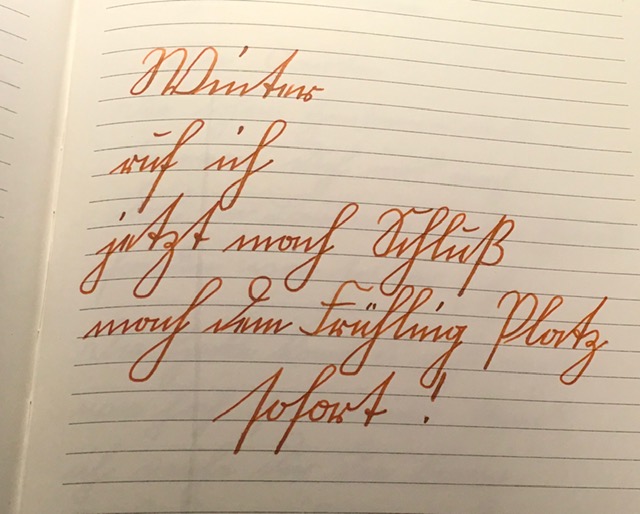 Winter
ruf ich
jetzt mach Schluß
mach dem Frühling Platz
sofort!